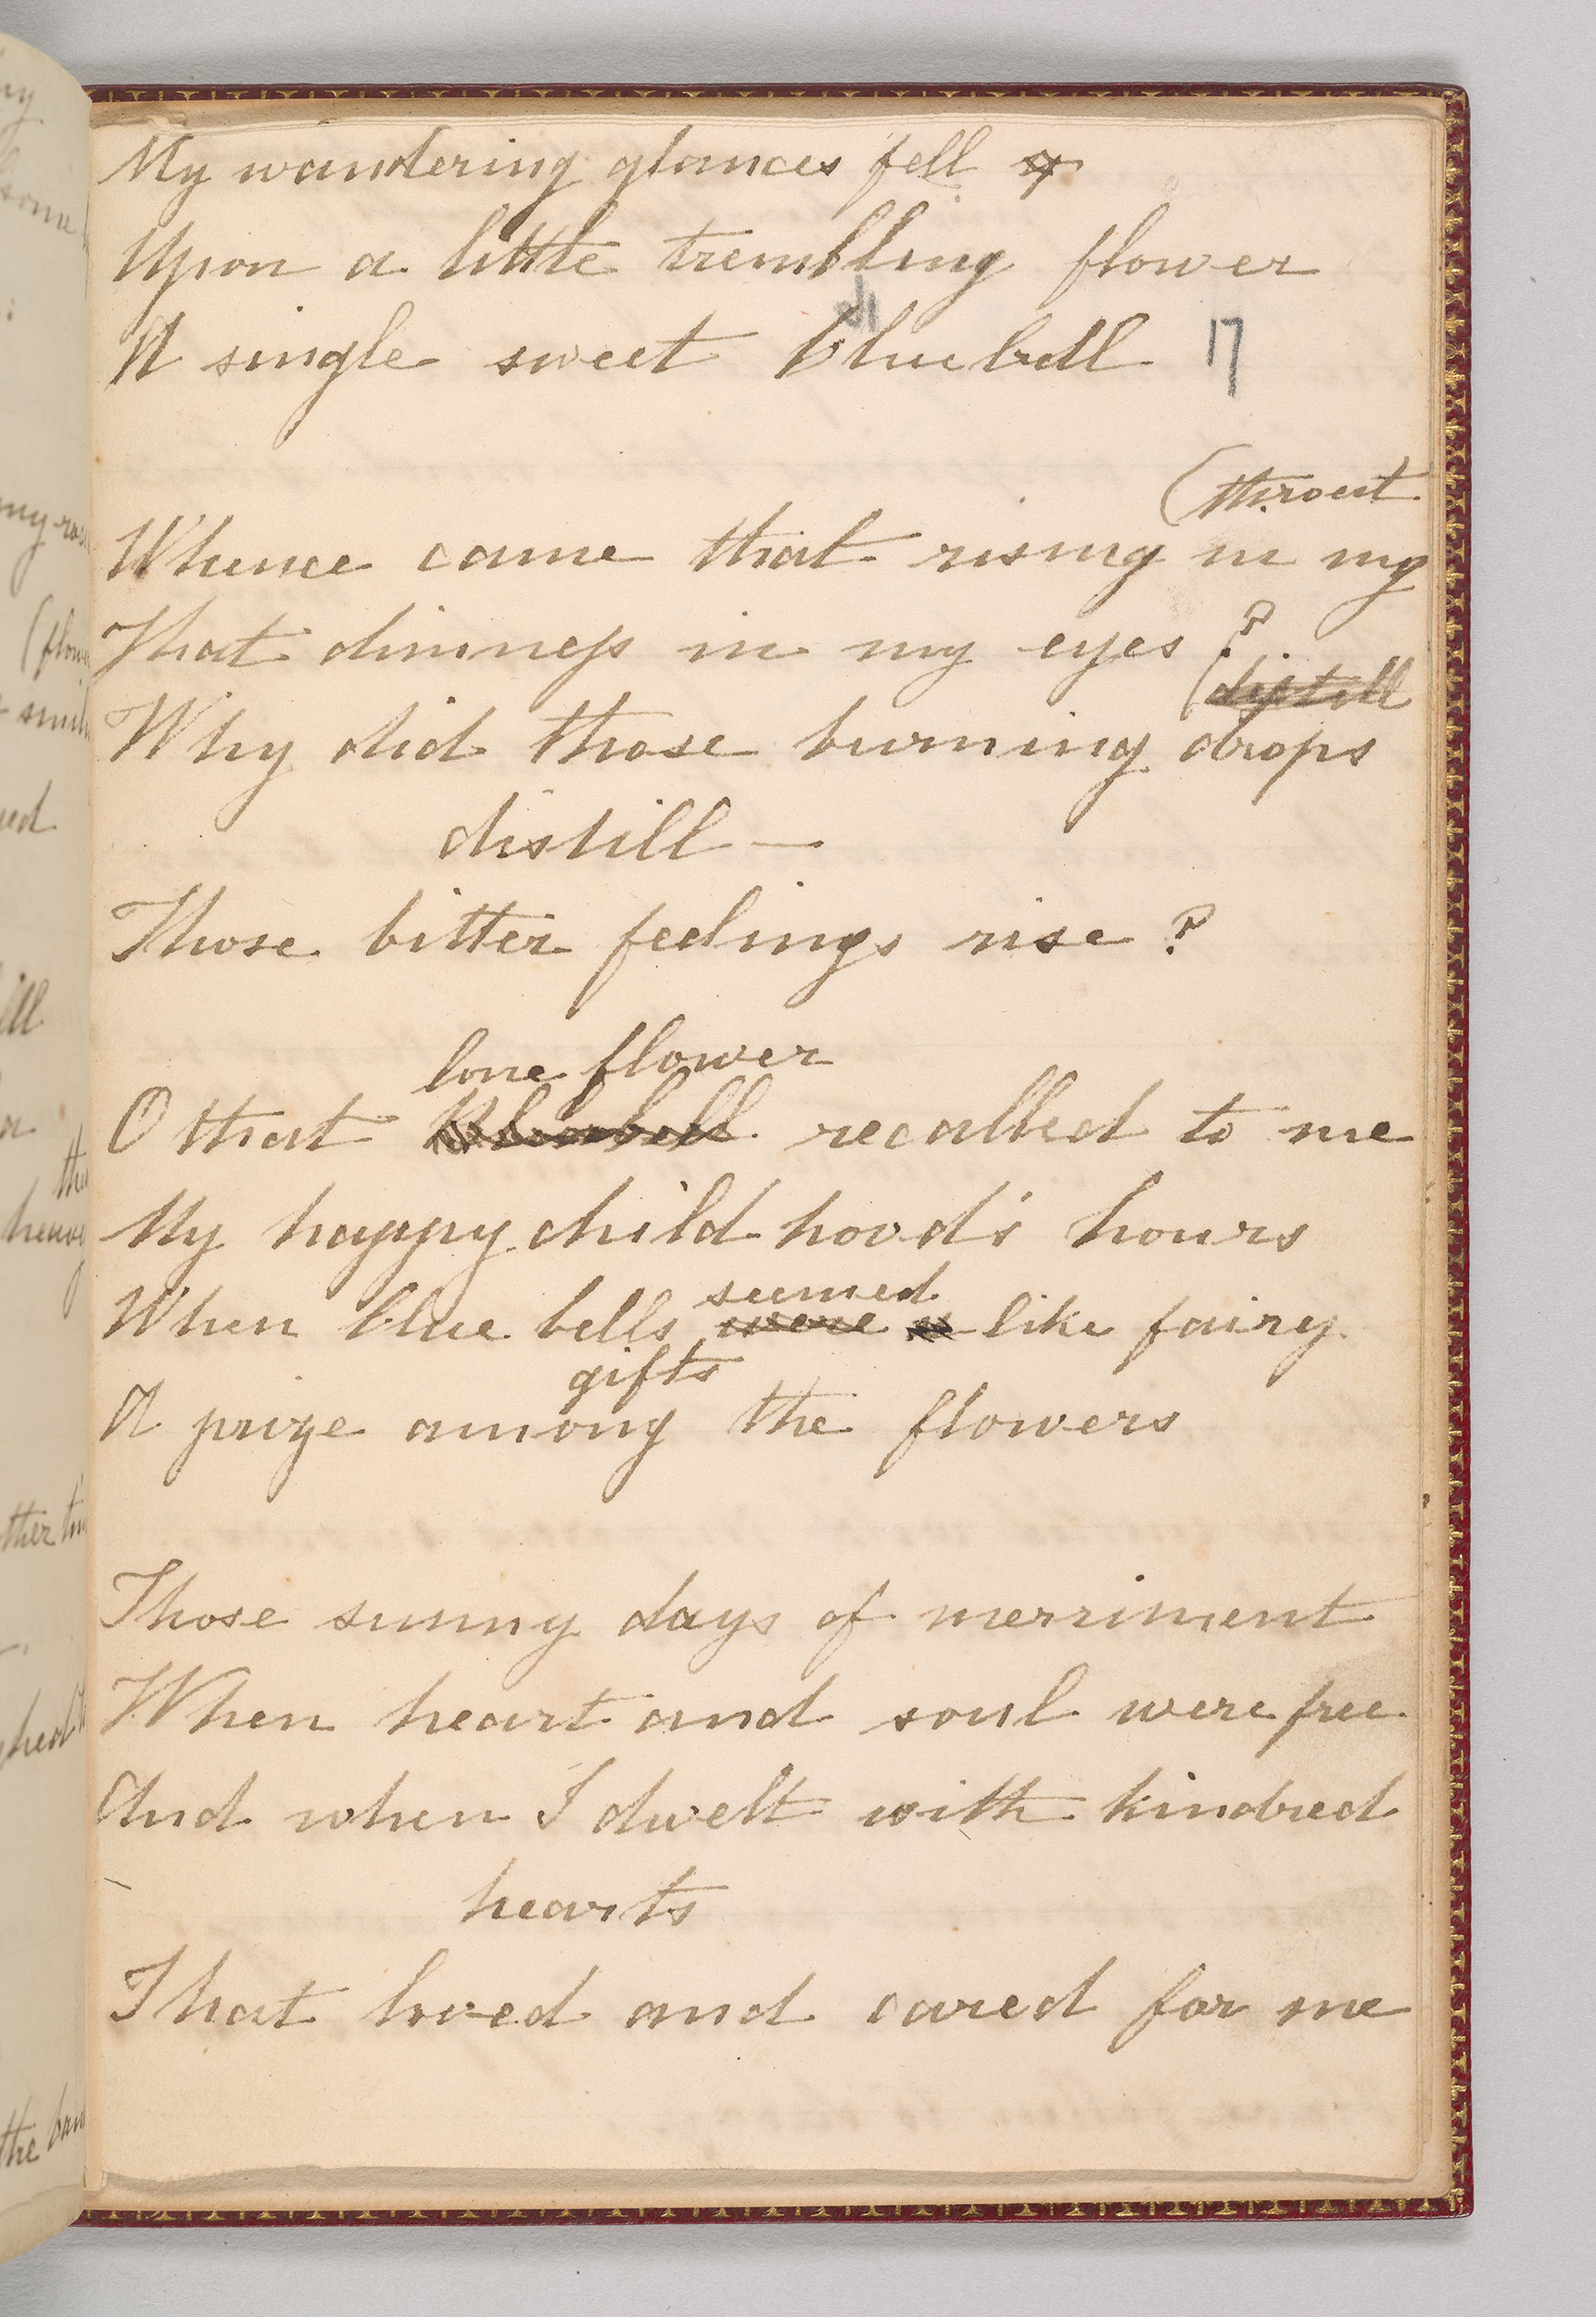 My wandering glances fell
Upon a little trembling flower
A single sweet bluebell 17
(throat
Whence came that rising in my
That dimness in my eyes ?
(distill
Why did those burning drops
distill —
Those bitter feelings rise ?
lone flower
O that Bluebell recalled to me
My happy childhood's hours
seemed
When blue bells were like fairy
gifts
A prize among the flowers
Those sunny days of merriment
When heart and soul were free
And when I dwelt with kindred
hearts
That loved and cared for me